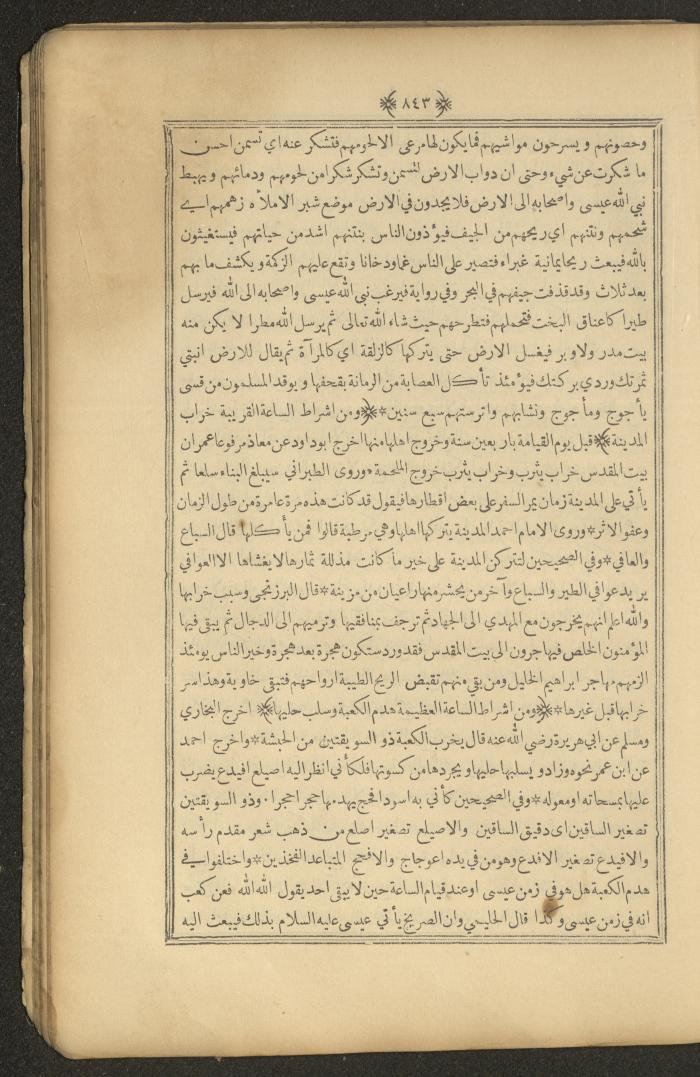 ﴿٨٤٣﴾
وحصونهم ويسرحون مواشيهم فما يكون لها مرعى الا لحومهم فتشكر عنه اي تسمن احسن
ما شكرت عن شيء وحتى ان دواب الارض لتسمن وتشكر شكرا من لحومهم ودمائهم ويهبط
نبي الله عيسى واصحابه الى الارض فلا يجدون في الارض موضع شبر الا ملأه زهمهم اي
شحمهم ونتنهم اي ريحهم من الجيف فيؤذون الناس بنتنهم اشد من حياتهم فيستغيثون
بالله فيبعث ريحا يمانية غبراء فتصير على الناس غما ودخانا وتقع عليهم الزكمة ويكشف ما بهم
بعد ثلاث وقد قذفت جيفهم في البحر وفي رواية فيرغب نبي الله عيسى واصحابه الى الله فيرسل
طيرا كاعناق البخت فتحملهم فتطرحهم حيث شاء الله تعالى ثم يرسل الله مطرا لا يكن منه
بيت مدر ولا وبر فيغسل الارض حتى يتركها كالزلقة اي كالمرآة ثم يقال للارض انبتي
ثمرتك وردي بركتك فيؤمئذ تأكل العصابة من الرمانة بقحفها ويوقد المسلمون من قسى
يأجوج ومأجوج ونشابهم واترستهم سبع سنين * ﴿ومن اشراط الساعة القريبة خراب
المدينة﴾ قبل يوم القيامة باربعين سنة وخروج اهلها منها اخرج ابو داود عن معاذ مرفوعا عمران
بيت المقدس خراب يثرب وخراب يثرب خروج الملحمة * وروى الطبراني سيبلغ البناء سلعا ثم
يأتي على المدينة زمان يمر السفر على بعض اقطارها فيقول قد كانت هذه مرة عامرة من طول الزمان
وعفو الاثر * وروى الامام احمد المدينة يتركها اهلها وهي مرطبة قالوا فمن يأكلها قال السباع
والعافي * وفي الصحيحين لتتركن المدينة على خير ما كانت مذللة ثمارها لا يغشاها الا العوافي
يريد عوافي الطير والسباع وآخر من يحشر منها راعيان من مزينة * قال البرزنجي وسبب خرابها
والله اعلم انهم يخرجون مع المهدي الى الجهاد ثم ترجف بمنافقيها وترميهم الى الدجال ثم يبقى فيها
المؤمنون الخلص فيهاجرون الى بيت المقدس فقد ورد ستكون هجرة بعد هجرة وخير الناس يومئذ
الزمهم مهاجر ابراهيم الخليل ومن بقي منهم تقبض الريح الطيبة ارواحهم فتبقى خاوية وهذا سر
خرابها قبل غيرها * ﴿ومن اشراط الساعة العظيمة هدم الكعبة وسلب حليها﴾ اخرج البخاري
ومسلم عن ابي هريرة رضي الله عنه قال يخرب الكعبة ذو السويقتين من الحبشة * واخرج احمد
عن ابن عمر نحوه وزاد ويسلبها حليها ويجردها من كسوتها فلكأني انظر اليه اصيلع افيدع يضرب
عليها بمسحاته او معوله * وفي الصحيحين كأني به اسود افحج يهدمها حجرا حجرا . وذو السويقتين
تصغير الساقين اى دقيق الساقين والاصيلع تصغير اصلع من ذهب شعر مقدم رأسه
والافيدع تصغير الافدع وهو من في يده اعوجاج والافحج المتباعد الفخذين * واختلفوا في
هدم الكعبة هل هو في زمن عيسى او عند قيام الساعة حين لا يبقى احد يقول الله الله فعن كعب
انه في زمن عيسى وكذا قال الحليمي وان الصريخ يأتي عيسى عليه السلام بذلك فيبعث اليه